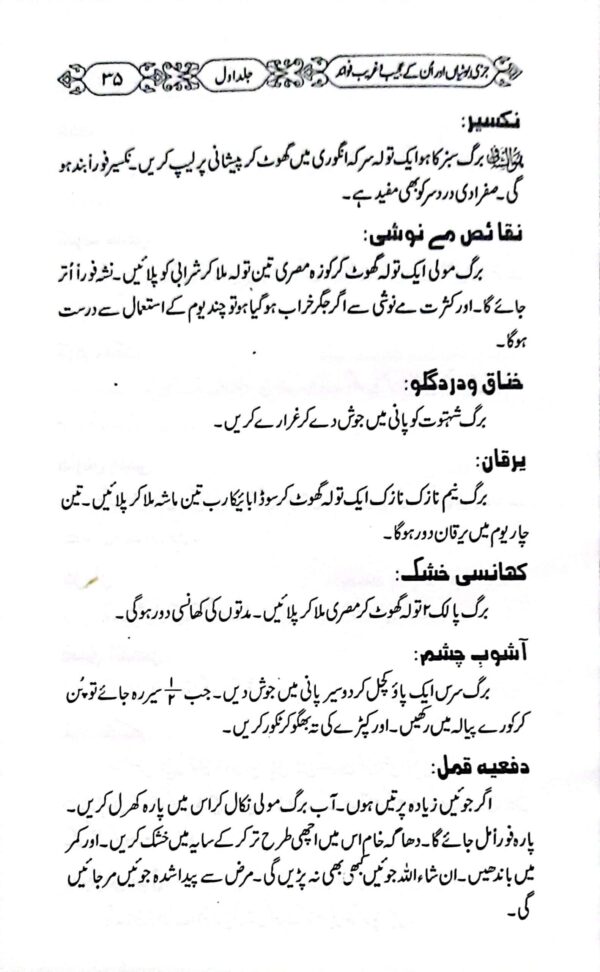 جڑی بوٹیاں اور اُن کے عجیب و غریب فوائد جلد اول ۳۵
نکسیر:
برگ سبز کاہو ایک تولہ سرکہ انگوری میں گھوٹ کر پیشانی پر لیپ کریں۔ نکسیر فوراً بند ہو
گی۔ صفراوی دردسر کو بھی مفید ہے۔
نقائص مے نوشی:
برگ مولی ایک تولہ گھوٹ کر کوزہ مصری تین تولہ ملا کر شرابی کو پلائیں۔ نشہ فوراً اُتر
جائے گا۔ اور کثرت مے نوشی سے اگر جگر خراب ہو گیا ہو تو چند یوم کے استعمال سے درست
ہوگا۔
خناق ودردگلو:
برگ شہتوت کو پانی میں جوش دے کر غرارے کریں۔
یرقان:
برگ نیم نازک نازک ایک تولہ گھوٹ کر سوڈا بائیکارب تین ماشہ ملا کر پلائیں۔ تین
چار یوم میں یرقان دور ہوگا۔
کھانسی خشک:
برگ پالک ۲ تولہ گھوٹ کر مصری ملا کر پلائیں۔ مدتوں کی کھانسی دور ہوگی۔
آشوبِ چشم:
برگ سرس ایک پاؤ کچل کر دو سیر پانی میں جوش دیں۔ جب ۱/۲ سیر رہ جائے تو پُن
کر کورے پیالہ میں رکھیں۔ اور کپڑے کی تہ بھگو کر ٹکور کریں۔
دفعیہ قمل:
اگر جوئیں زیادہ پرتیں ہوں۔ آب برگ مولی نکال کر اس میں پارہ کھرل کریں۔
پارہ فوراً مل جائے گا۔ دھاگہ خام اس میں اچھی طرح تر کر کے سایہ میں خشک کریں۔ اور کمر
میں باندھیں۔ ان شاء اللہ جوئیں کبھی بھی نہ پڑیں گی۔ مرض سے پیدا شدہ جوئیں مر جائیں
گی۔